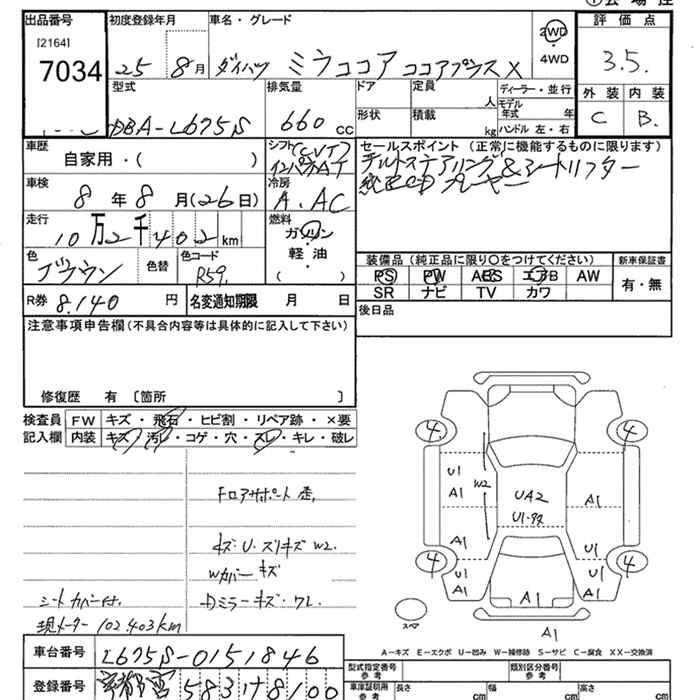 出品番号 初度登録年月 車名・グレード 2WD 評価点
[2164] ・
7034 25 8月 ダイハツ ミラココア ココアプラスX 4WD 3.5.
型式 排気量 ドア 定員 人 ディーラー・並行 外装 内装
DBA-L675S 660 cc 形状 積載 kg モデル年式 年 C B.
ハンドル 左・右
車歴 自家用・( ) シフト(CVT) セールスポイント (正常に機能するものに限ります)
インパネAT チルトステアリング&シートリフター
車検 8年8月(26日) 冷房 A.AC 純正CDプレーヤー
走行 10万2千402km 燃料 ガソリン
軽油
( )
色 ブラウン 色替 色コード R59. 装備品 (純正品に限り○をつけてください) 新車保証書
PS PW ABS エアB AW 有・無
SR ナビ TV カワ
R券 8.140円 名変通知期限 月 日 後日品
注意事項申告欄 (不具合内容等は具体的に記入して下さい)
修復歴 有 〔箇所 〕
検査員 FW キズ・飛石・ヒビ割・リペア跡・×要
記入欄 内装 キズ・汚レ・コゲ・穴・スレ・キレ・破レ
フロアサポート歪,
キズ・U.スリキズW2.
Wカバーキズ
シートカバー付. Dミラーキズ・ワレ.
現メーター102.403km
4 4
U1 W2
A1 UA2 A1
A1 U1
4 4
U1 U1
A1 A1 A1
スペア A1
A-キズ E-エクボ U-凹み W-補修跡 S-サビ C-腐食 XX-交換済
車台番号 L675S-0151846 型式指定番号 参考 類別区分番号 参考
登録番号 583 8100 車庫証明用 参考 長さ cm 幅 cm 高さ cm